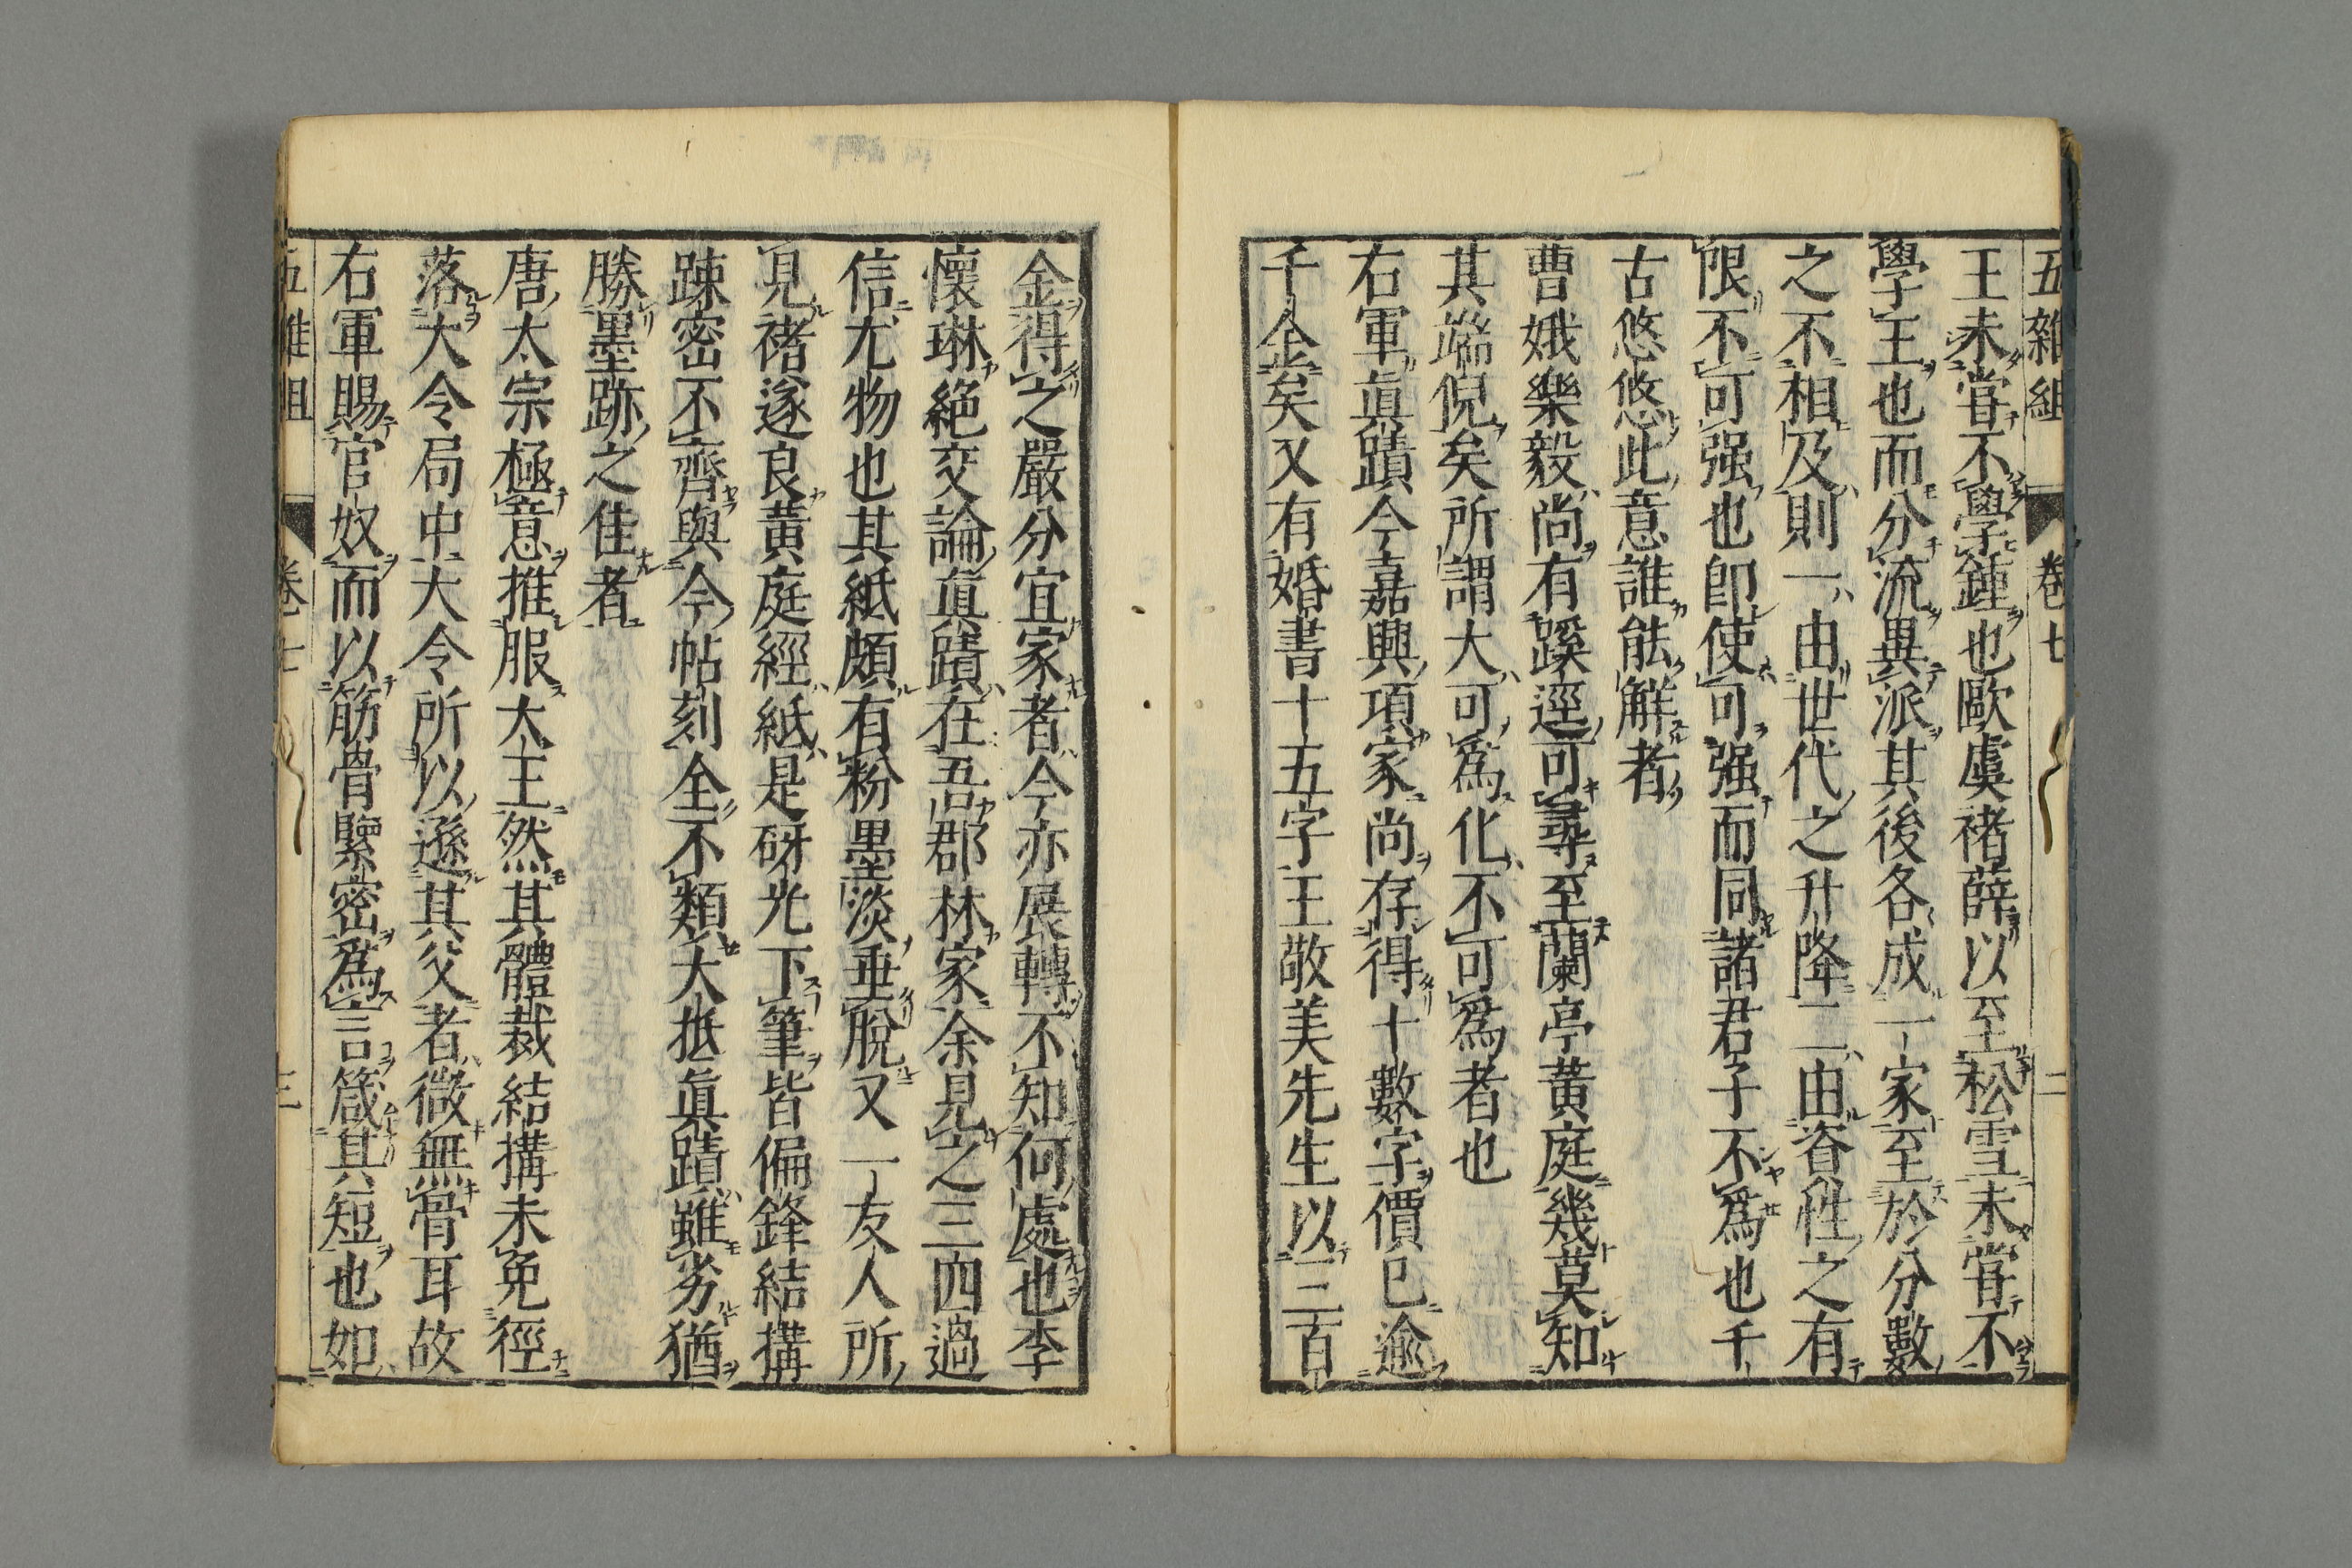 五雜組 卷七 二
王未甞不學鍾也歐虞褚薛以至松雪未甞不
學王也而分流異派其後各成一家至於分數
之不相及則一由世代之升降二由資性之有
限不可强也卽使可强而同諸君子不爲也千
古悠悠此意誰能解者
曹娥樂毅尚有蹊逕可尋至蘭亭黃庭幾莫知
其端倪矣所謂大可爲化不可爲者也
右軍眞蹟今嘉興項家尚存得十數字價已逾
千金矣又有婚書十五字王敬美先生以三百
金得之嚴分宜家者今亦展轉不知何處也李
懷琳絕交論眞蹟在吾郡林家余見之三四過
信尤物也其紙頗有粉墨淡垂脫又一友人所
見褚遂良黃庭經紙是砑光下筆皆偏鋒結搆
踈密不齊與今帖刻全不類大抵眞蹟雖劣猶
勝墨跡之佳者
唐太宗極意推服大王然其體裁結搆未免徑
落大令局中大令所以遜其父者微無骨耳故
右軍賜官奴而以筋骨緊密爲言箴其短也如
五雜組 卷七 三